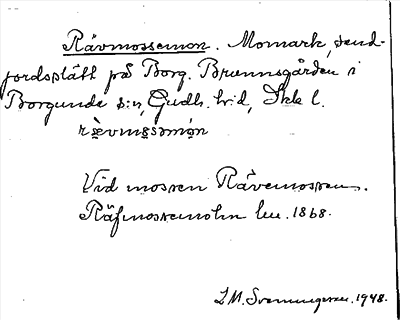 Rävmossemon. Momark, sand-
jordsslätt på Borg. Brunnsgården i
Borgunda s:n, Gudh. hd, Skb l.
rævmɷsəmɷn
Vid mossen Rävemossen.
Räfmossemohn lm. 1868.
I. M. Svenningsson. 1948.